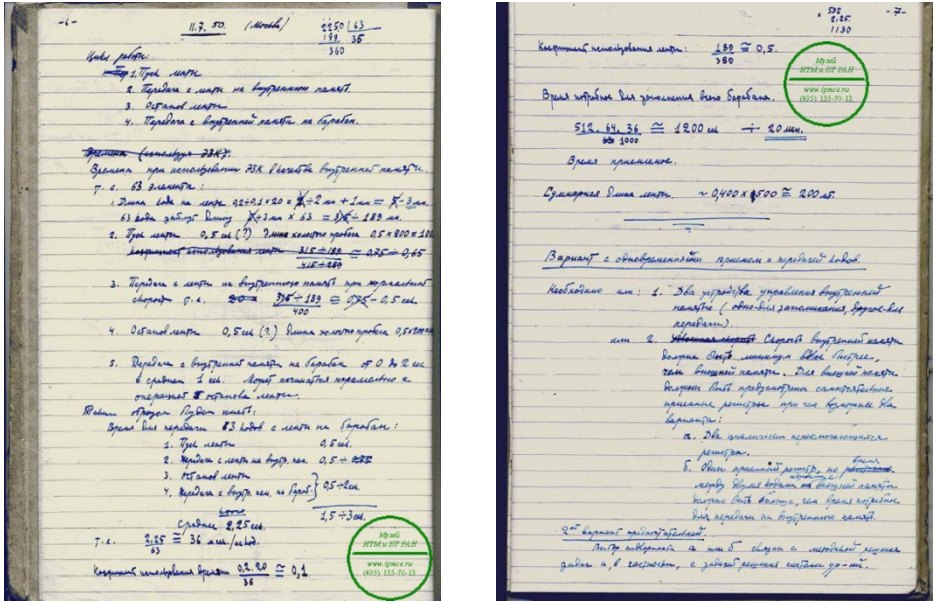 -6-
11.7.50. (Москва)
2250 | 63
189 35
360
Цикл работы:
1. Пуск ленты
2. Передача с ленты на внутреннюю память
3. Останов ленты
4. Передача с внутренней памяти на барабан.
Времена (используя ЭЗК).
Времена при использовании ЭЗК в качестве внутренней памяти.
т.е. 63 элемента:
1. Длина кода на ленте
63 кода займут длину
2. Пуск ленты 0,5 сек (?) Длина холостого пробега
коэффициент использования ленты 315÷189 ≅ 0,75 ÷ 0,65
3. Передача с ленты на внутреннюю память при нормальной
скорости т.е. 189 ≅ 0,5 сек.
400
4. Останов ленты 0,5 сек (?) Длина холостого пробега
5. Передача с внутренней памяти на барабан от 0 до 2 сек.
в среднем 1 сек. Может начинаться параллельно с
операцией останова ленты.
Таким образом будем иметь:
Время для передачи 63 кодов с ленты на барабан:
1. Пуск ленты 0,5 сек.
2. Передача с ленты на внутр. пам. 0,5 ÷
3. Останов ленты
4. Передача с внутр. пам. на бараб. } 0,5÷2 сек.
1,5÷3 сек.
Среднее 2,25 сек.
т.е. 2,25 ≅ 36 м.сек/код.
63
Коэффициент использования времени 0,2.20 ≅ 0,1
36
Музей
ИТМ и ВТ РАН
www.ipmce.ru
(495) 135-70-13
-7-
× 592
2,25
1130
Коэффициент использования ленты: 189 ≅ 0,5.
380
Время потребное для заполнения всего барабана.
512. 64. 36 ≅ 1200 сек ÷ 20 мин.
1000
Время приемлемое.
Суммарная длина ленты ~ 0,400 × 500 ≅ 200 м.
Вариант с одновременным приемом и передачей кодов.
Необходимо или: 1. Два устройства управления внутренней
памятью (одно для запоминания, другое для
передачи).
или 2. Скорость внутренней памяти
должна быть минимум вдвое быстрее,
чем внешней памяти. Для внешней памяти
должны быть предусмотрены самостоятельные
приемные регистры при чем возможны два
варианта:
а. Два циклически переключающихся
регистра.
б. Один приемный регистр, но время
между двумя кодами внешней памяти
должно быть больше, чем время потребное
для передачи на внутреннюю память.
2ой вариант предпочтительней.
Выбор подварианта а или б связан с методикой решения
задач и, в частности, с задачей решения системы ур-ий.
Музей
ИТМ и ВТ РАН
www.ipmce.ru
(495) 135-70-13